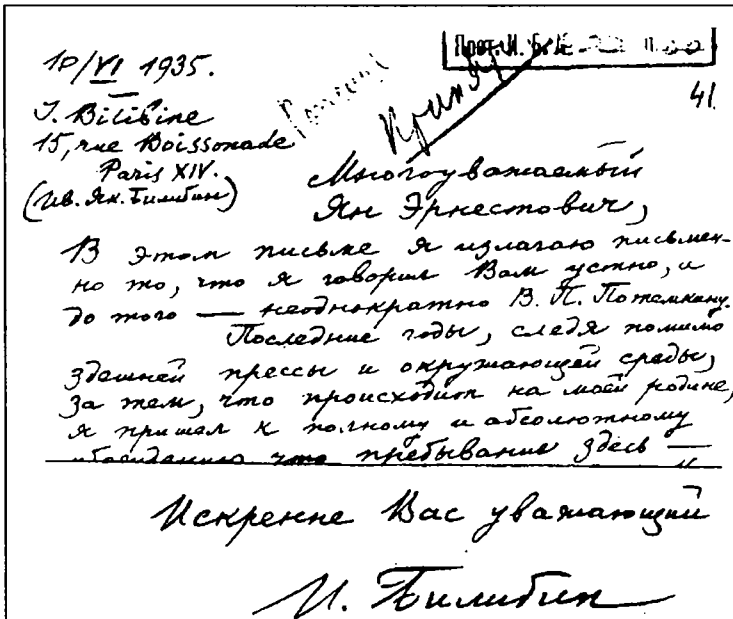 10/VI 1935.
I. Bilibine
15, rue Boissonade
Paris XIV.
(Ив. Як. Билибин)
41
Многоуважаемый
Ян Эрнестович,
В этом письме я излагаю письмен-
но то, что я говорил Вам устно, и
до того — неоднократно В. П. Потемкину.
Последние годы, следя помимо
здешней прессы и окружающей среды,
за тем, что происходит на моей родине,
я пришел к полному и абсолютному
убеждению что пребывание здесь —
Искренне Вас уважающий
И. Билибин